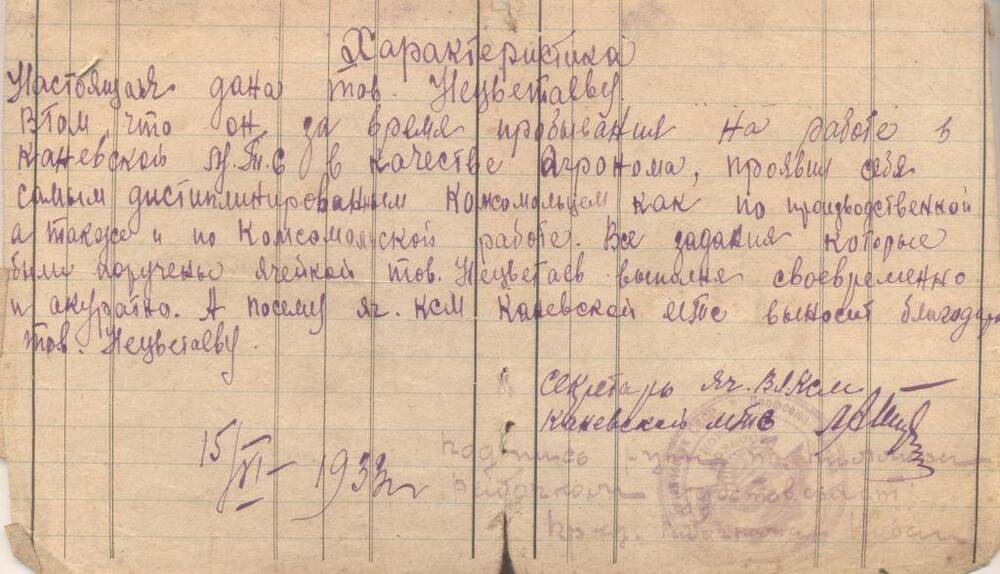 Характеристика
Настоящая дана тов. Нецветаеву.
Втом, что он, за время пробывания на работе в
Каневской М.Т.С в качестве Агронома, проявил себя
самым дистиплинированым Комсомольцем как по производственной
а также и по Комсомолской работе. Все задания которые
были поручены ячейкой тов. Нецветаев выполня своевременно
и акуратно. А посему яч. КСМ Каневской МТС выносит благодар
тов. Нецветаеву.
секретарь яч. ВЛКСМ
Каневской МТС
15/VI- 1933г
подпись